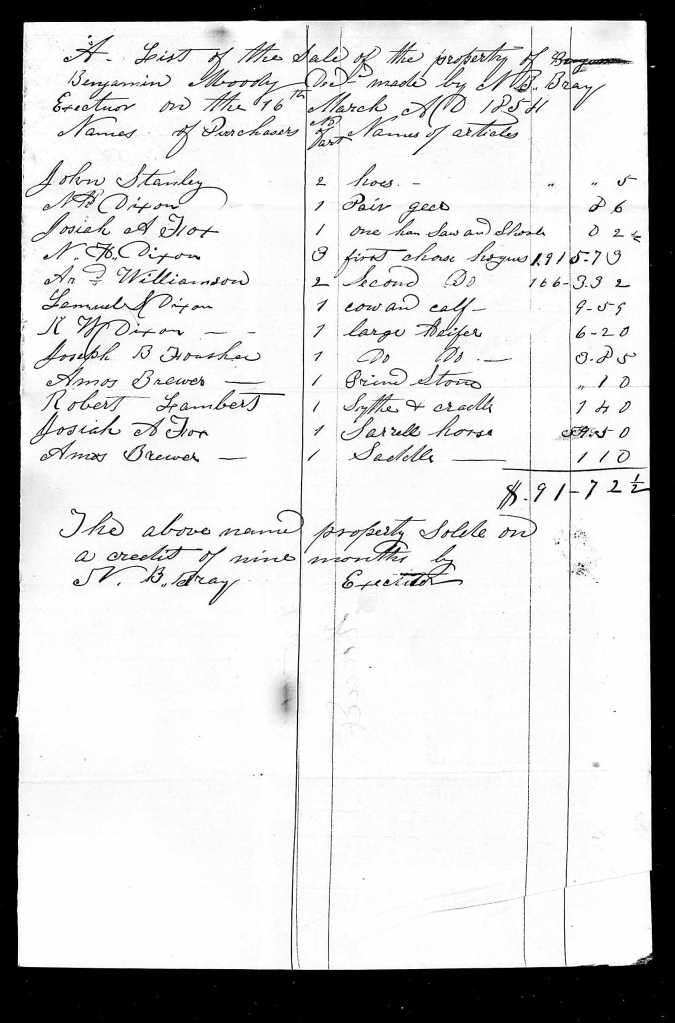 A. List of the Sale of the property of
Benjamin Moody Decd made by N. B. Bray
Exectuor on the 16th March A D 1854
Names of Purchasers No of Part Names of articles
John Stanley 2 hoes. - " " 5
N H Dixon 1 Pair gees 8 6
Josiah A Fox 1 one han Saw and 0 2 ½
N. H. Dixon 3 first chose hogues 191 5-73
2 Second Do 166-3.32
Lemuel Dixon 1 cow and calf - 9-59
R W Dixon - - 1 large Heifer 6-20
Joseph B 1 Do Do. - 3.85
Amos Brewer - 1 Grind Stone " 10
Robert Lambert 1 Sythe & cradle 1 40
Josiah A Fox 1 Sarrell horse 59.50
Amos Brewer - 1 Saddle - 1 10
$. 91-72 ½
The above name property Solde on
a credit of nine months by
N. B. Bray Executor